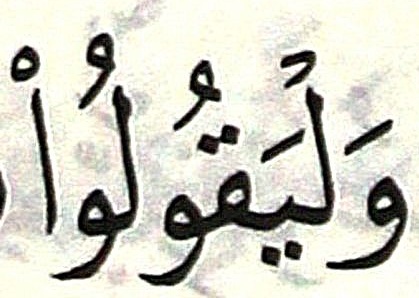 وَلۡيَقُولُواْ